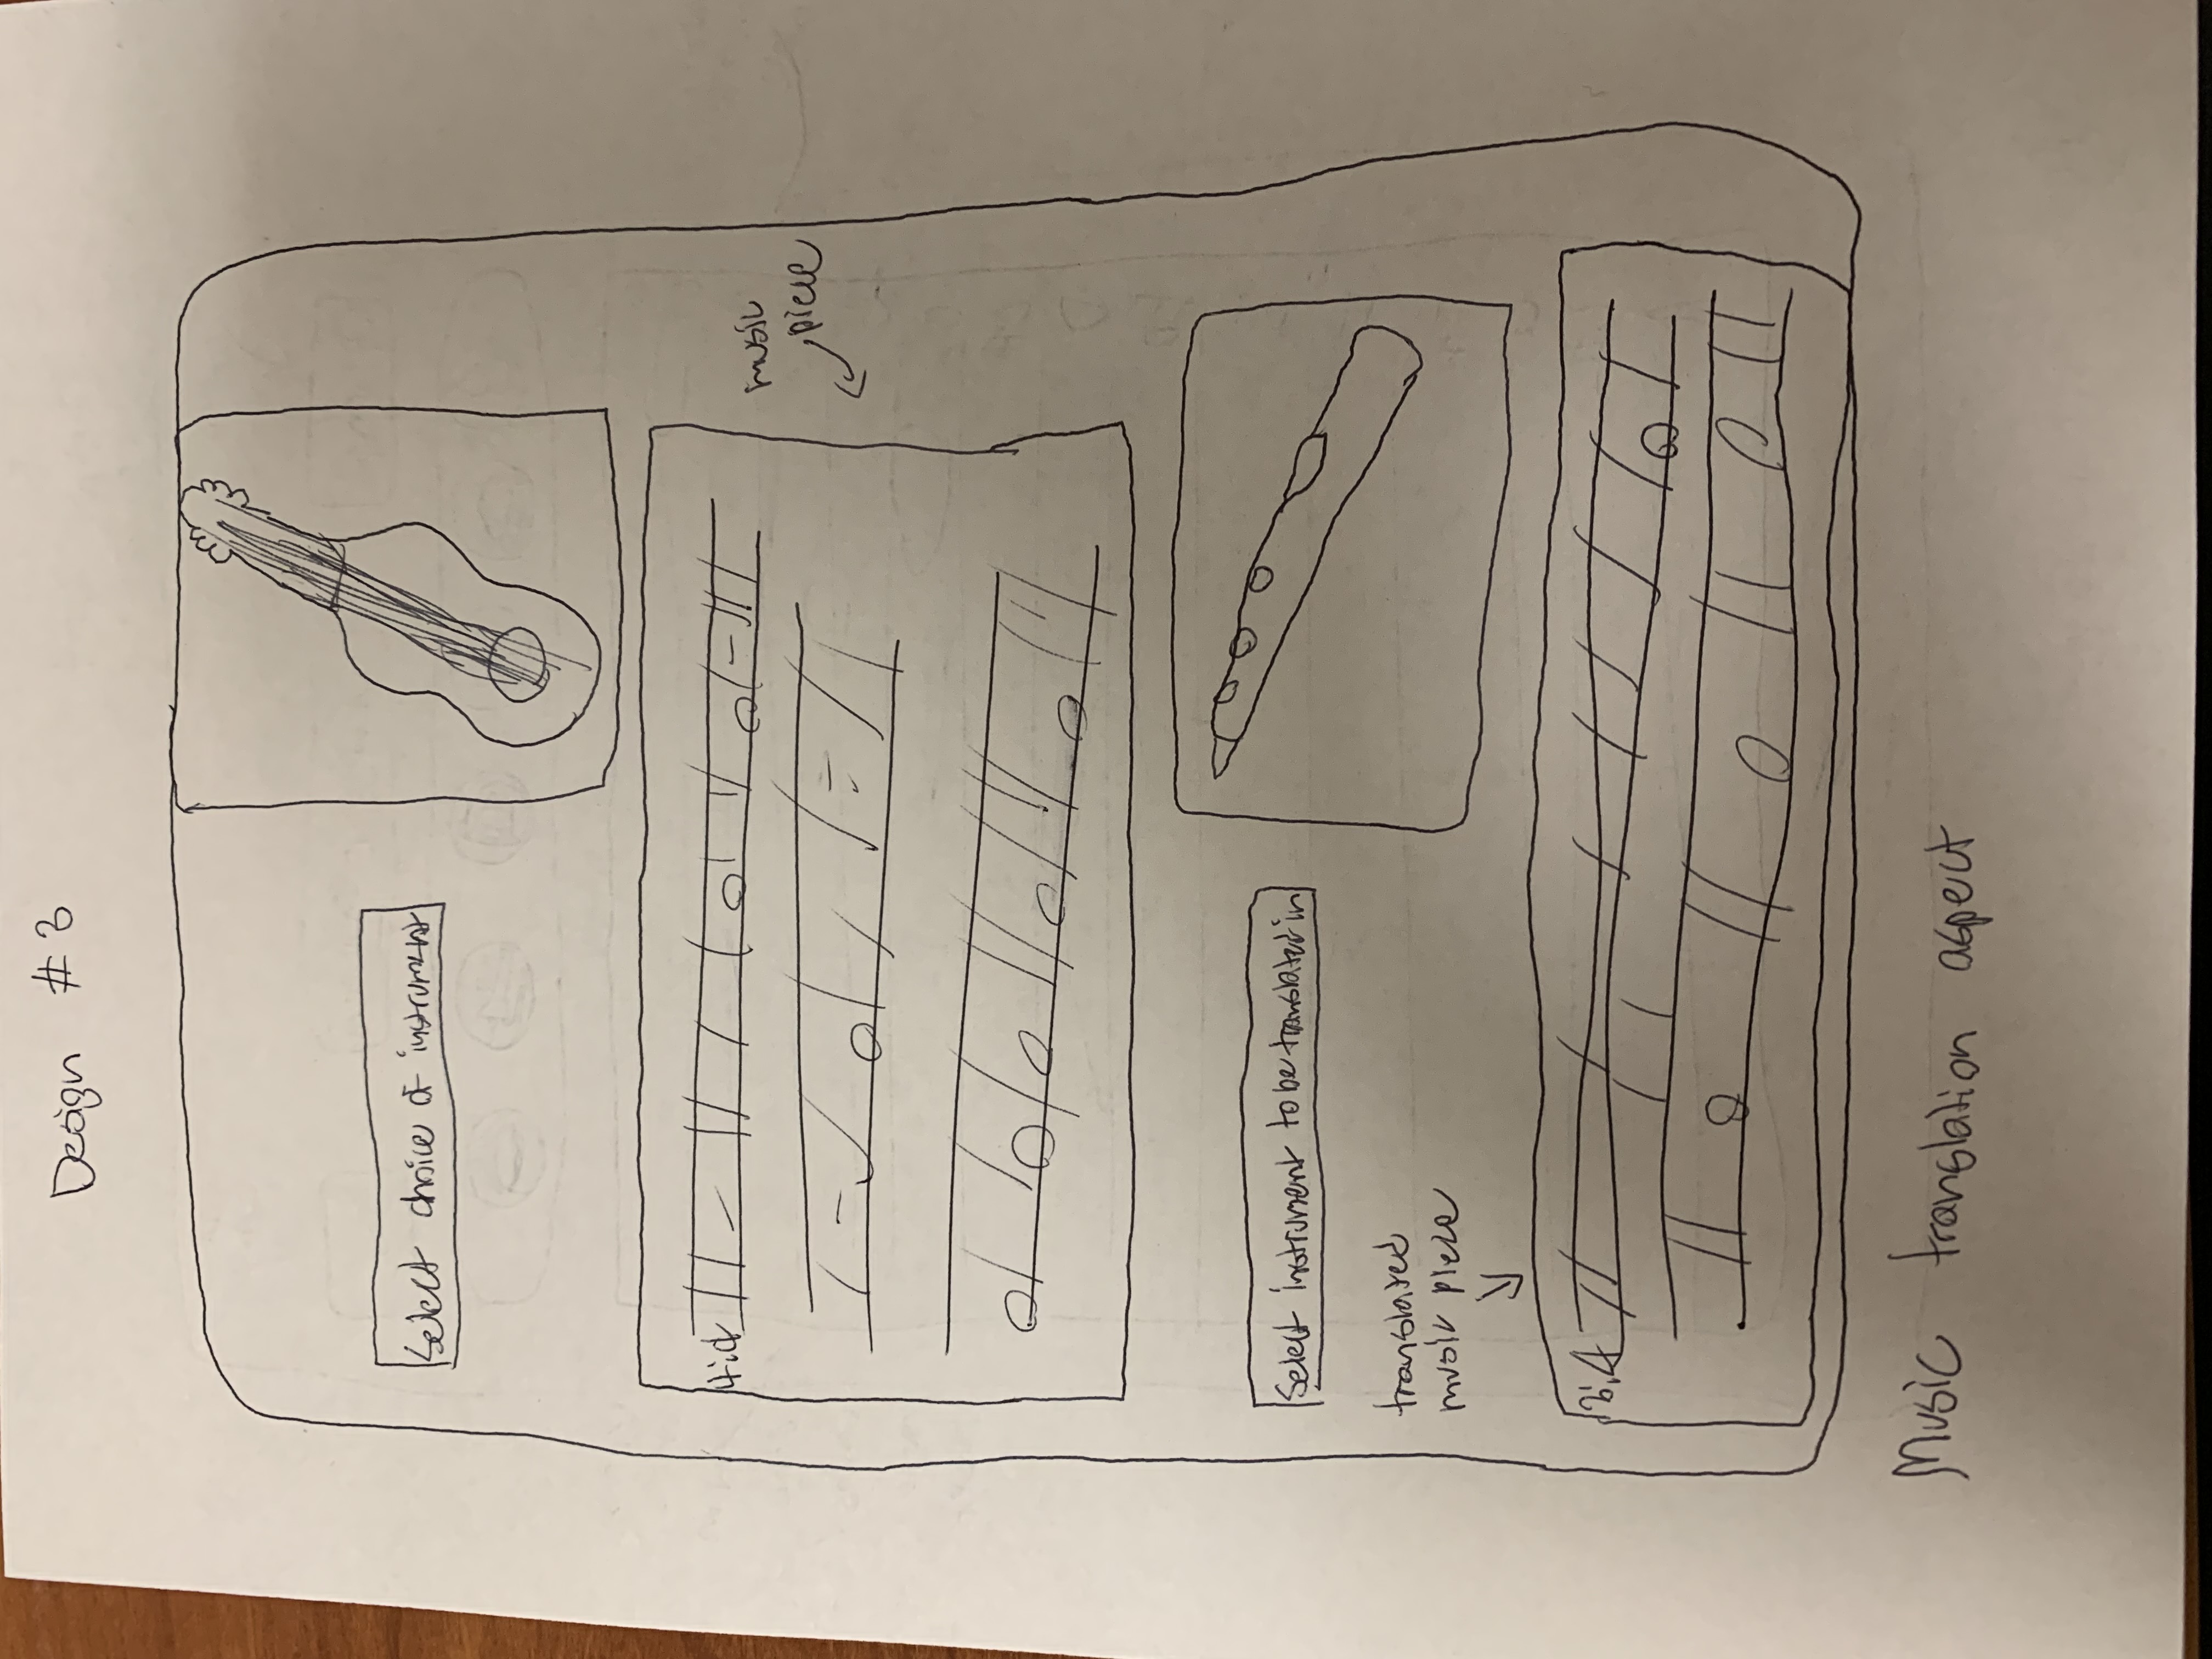 Design #3
Select choice of instrument
4:4
music
piece
Select instrument to be translated in
translated
music piece
3:4
Music translation aspect